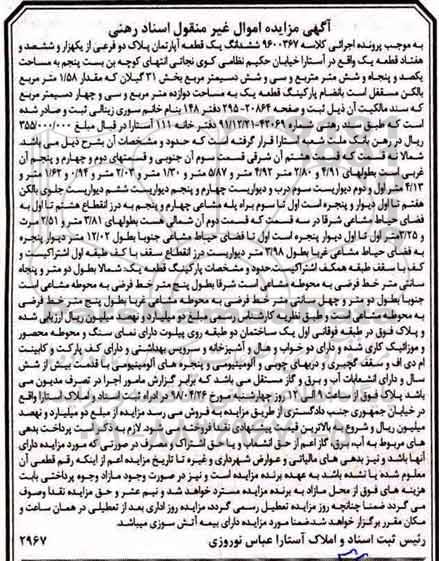 آگهی مزایده اموال غیر منقول اسناد رهنی
به موجب پرونده اجرائی کلاسه ۹۶۰۰۳۶۷ ششدانگ یک قطعه آپارتمان پلاک دو فرعی از یکهزار و ششصد و
هفتاد قطعه یک واقع در آستارا خیابان حکیم نظامی کوی نجاتی انتهای کوچه بن بست پنجم به مساحت
یکصد و پنجاه و شش متر مربع و سی و شش دسیمتر مربع بخش ۳۱ گیلان که مقدار ۱/۵۸ متر مربع
بالکن مسقف است بانضمام پارکینگ قطعه یک به مساحت دوازده متر مربع و سی و چهار دسیمتر مربع
که سند مالکیت آن ذیل ثبت و صفحه ۲۰۸۶۴-۲۹۵ دفتر ۱۴۸ بنام خانم سوری زینالی ثبت و صادر شده
است که طبق سند رهنی شماره ۴۳۰۶۹-۹۱/۱۲/۲۱ دفتر خانه ۱۱۱ آستارا در قبال مبلغ ۳۵۵/۰۰۰/۰۰۰
ریال در رهن بانک ملت شعبه آستارا قرار گرفته است که حدود و مشخصات آن بشرح ذیل می باشد.
شمالا نه قسمت که قسمت هشتم آن شرقی قسمت سوم آن جنوبی و قسمتهای دوم و چهارم و پنجم آن
غربی است بطولهای ۴/۹۱ و ۲/۸۰ متر ۴/۹۲ متر و ۵/۸۷ متر و ۱/۳۰ متر و ۲/۰۳ متر و ۰/۹۴ و ۱/۶۲ متر و
۴/۱۳ متر اول و دوم دیواریست سوم درب و دیواریست چهارم و پنجم دیواریست ششم دیواریست جلوی بالکن
هفتم تا اول دیوار و پنجره است اول تا سوم براه پله مشاعی چهارم و پنجم به درز انقطاع هشتم تا اول به
فضای حیاط مشاعی شرقا در سه قسمت که قسمت دوم آن شمالی هست بطولهای ۳/۸۱ متر و ۲/۵۱ متر
و ۳/۲۵ متر اول تا اول دیوار پنجره است اول تا فضای حیاط مشاعی جنوبا بطول ۱۲/۰۲ متر دیوار پنجره
به فضای حیاط مشاعی غربا بطول ۳/۹۸ متر دیواریست درز انقطاع سقف با کف طبقه اول اشتراکیست و
کف با سقف طبقه همکف اشتراکیست حدود و مشخصات پارکینگ قطعه یک: شمالا بطول دو متر و پنجاه
سانتی متر خط فرضی به محوطه مشاعی است شرقا بطول پنج متر خط فرضی به محوطه مشاعی است
جنوبا بطول دو متر و چهل سانتی متر خط فرضی به محوطه مشاعی غربا بطول پنج متر خط فرضی
به محوطه مشاعی است و طبق نظریه کارشناس رسمی مبلغ دو میلیارد و نهصد میلیون ریال ارزیابی شده
و پلاک فوق در طبقه فوقانی اول یک ساختمان دو طبقه روی پیلوت دارای نمای سنگ و محوطه محصور
و موزائیک کاری شده و دارای دو خواب و هال و آشپزخانه و سرویس بهداشتی و دارای کف پارکت و کابینت
ام دی اف و سقف گچبری و دربهای چوبی و آلومینیومی و پنجره های آلومینیومی با قدمت بیش از شش
سال و دارای انشعابات آب و برق و گاز مستقل می باشد که برابر گزارش مامور اجرا در تصرف مدیون می
باشد پلاک فوق از ساعت ۹ الی ۱۲ روز چهارشنبه مورخ ۹۸/۰۴/۲۶ در اداره ثبت اسناد و املاک آستارا واقع
در خیابان جمهوری جنب دادگستری از طریق مزایده به فروش می رسد مزایده از مبلغ دو میلیارد و نهصد
میلیون ریال و شروع به بالاترین قیمت پیشنهادی نقدا فروخته می شود. لازم به ذکر است پرداخت بدهی
های مربوط به آب، برق، گاز اعم از حق انشعاب و یا حق اشتراک و مصرف در صورتی که مورد مزایده دارای
آنها باشد و نیز بدهی های مالیاتی و عوارض شهرداری و غیره تا تاریخ مزایده اعم از اینکه رقم قطعی آن
معلوم شده یا نشده باشد به عهده برنده مزایده است و نیز در صورت وجود مازاد وجوه پرداختی بابت
هزینه های فوق از محل مازاد به برنده مزایده مسترد خواهد شد و نیم عشر و حق مزایده نقدا وصول
می گردد ضمنا چنانچه روز مزایده تعطیل رسمی گردد، مزایده روز اداری بعد از تعطیلی در همان ساعت و
مکان مقرر برگزار خواهد شد ضمنا مورد مزایده دارای بیمه آتش سوزی میباشد.
رئیس ثبت اسناد و املاک آستارا عباس نوروزی ۲۹۶۷